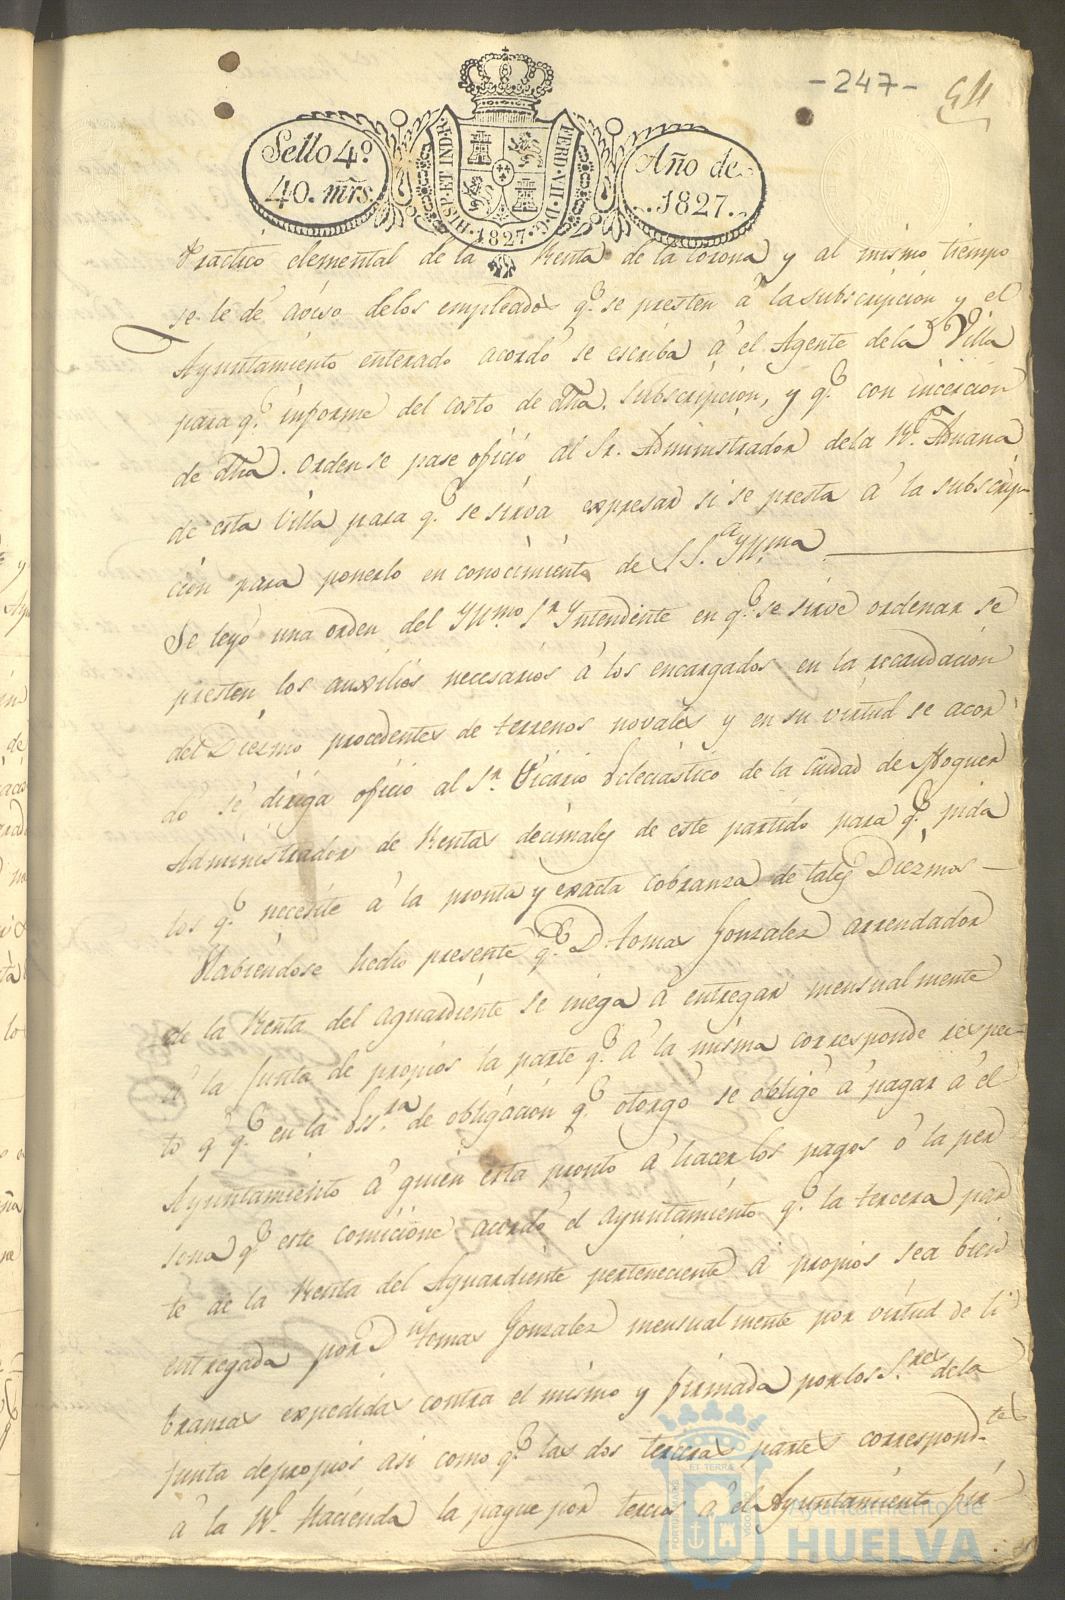 -247- 54
Sello 4.º
40. mrs.
HISP. ET IND. R.
FERD. VII. D. G.
1827
Año de
1827.
Practico elemental de la Renta de la Corona y al mismo tiempo
se le dé aviso delos empleados q.e se presten á la subscripcion y el
Ayuntamiento enterado acordó se escriba á el Agente dela Villa
para q.e informe del costo de dha. subscripcion, y q.e con incercion
de dha. orden se pase oficio al Sr. Administrador dela R.l Aduana
de esta Villa para q.e se sirva expresar si se presta á la subscrip-
cion para ponerlo en conocimiento de S.S.a Yll.ma
Se leyó una orden del Yll.mo S.r Yntendente en q.e se sirve ordenar se
presten los auxilios necesarios á los encargados en la recaudacion
del Diezmo procedentes de terrenos novales y en su virtud se acor
dó se dirija oficio al S.r Vicario Eclesiastico de la Ciudad de Moguer
Administrador de Rentas decimales de este partido para q.e pida
los q.e necesite á la pronta y exacta cobranza de tales Diezmos —
Habiendose hecho presente q.e D. Tomas Gonzalez arrendador
de la Renta del aguardiente se niega á entregar mensualmente
á la Junta de propios la parte q.e á la misma corresponde respec-
to á q.e en la Ess.ra de obligacion q.e otorgó se obligó á pagar á el
Ayuntamiento á quien está pronto á hacer los pagos ó la per
sona q.e este comicione acordó el ayuntamiento q.e la tercera par
te de la Renta del Aguardiente perteneciente á propios sea bien
entregada por D.n Tomas Gonzalez mensualmente por virtud de li
branzas expedidas contra el mismo y firmada por los S.res dela
Junta de propios asi como q.e las dos terceras partes correspond.tes
á la R.l Hacienda la pague por tercios á el Ayuntamiento
Ayuntamiento de
HUELVA